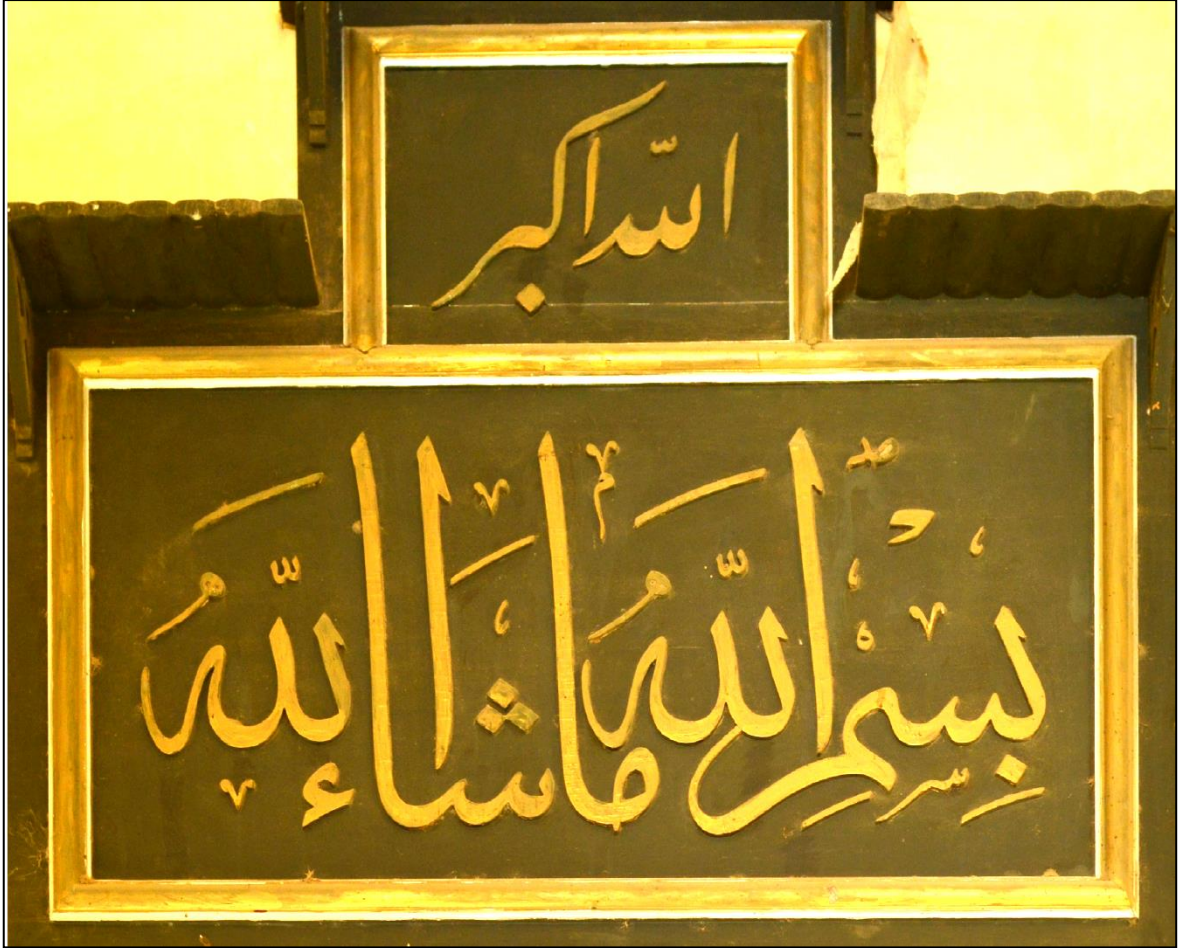 الله اكبر
بِسْمِ اللّٰهُ مَا شَاءَ اللّٰهُ